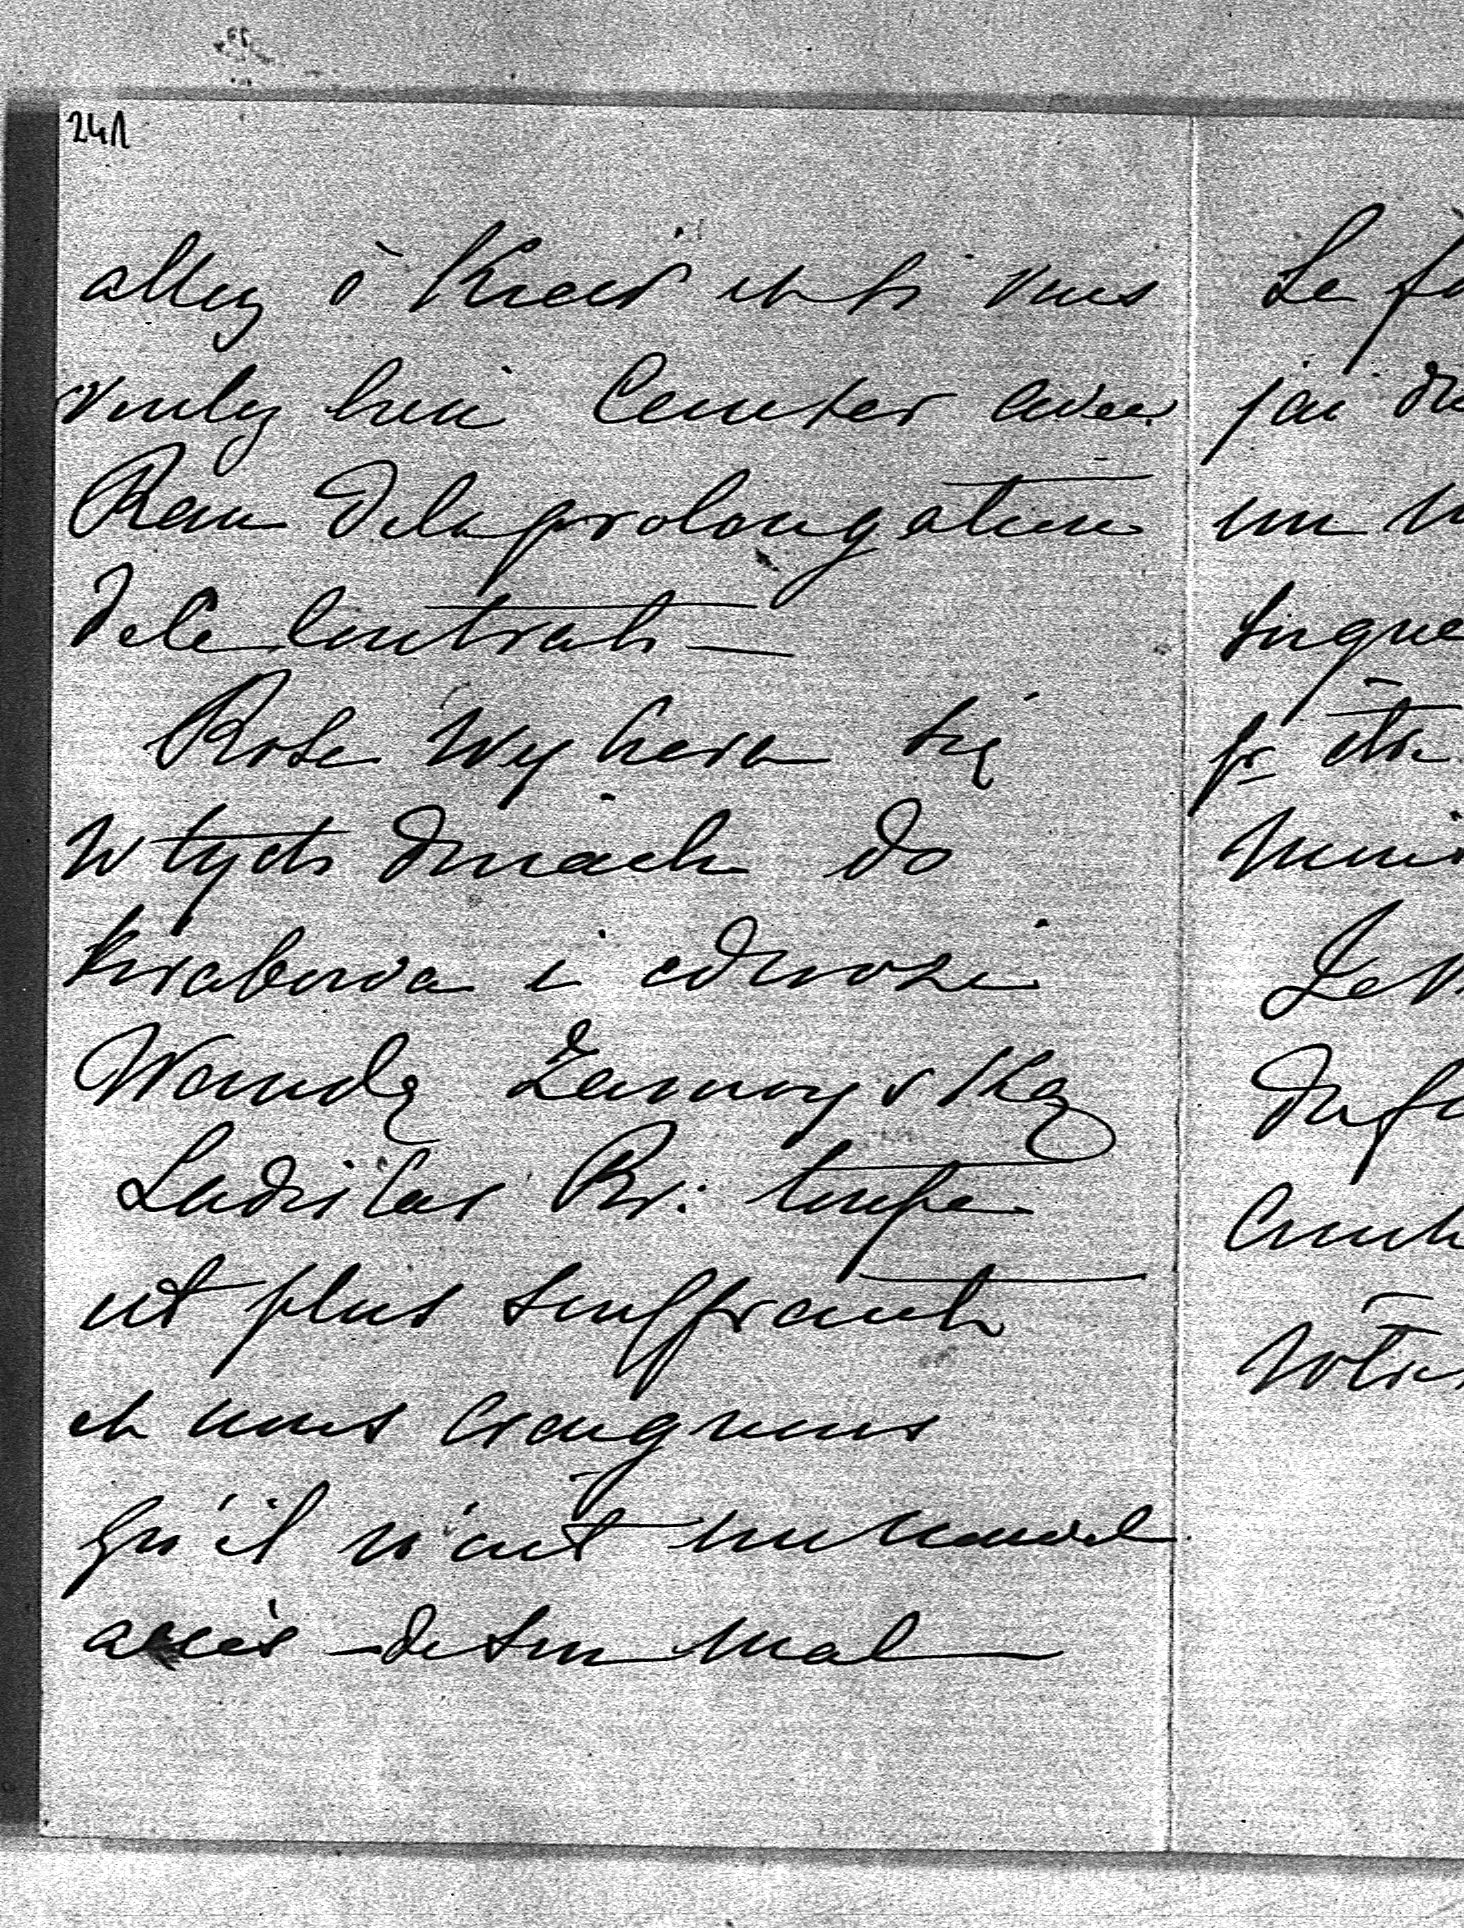 241
allez à Kiew et si vous
voulez bien Conster avec
Rau dela prolongation
de ce Contrat —
Rose wybiera się
w tych dniach do
Krakowa i odwozi
Wandę Zamoyską
Ladislas Br: tousse
est plus souffrant
et nous craignons
qu'il n'ait un nouvel
accès de son mal —
Le
j'ai
un
puisque
pr être
Le
du
notre